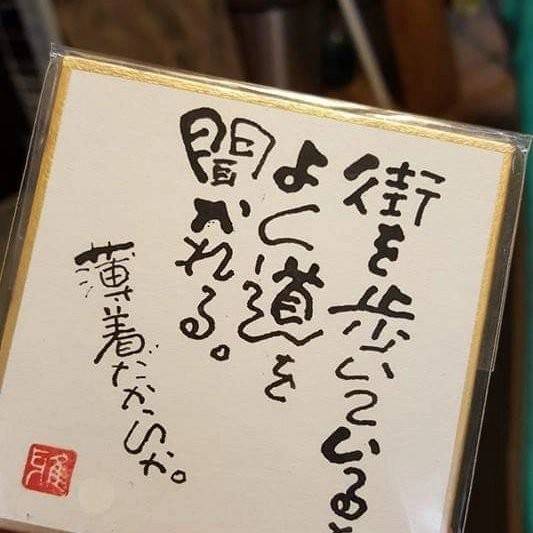 街を歩いていると
よく道を
聞かれる。
薄着だからか。